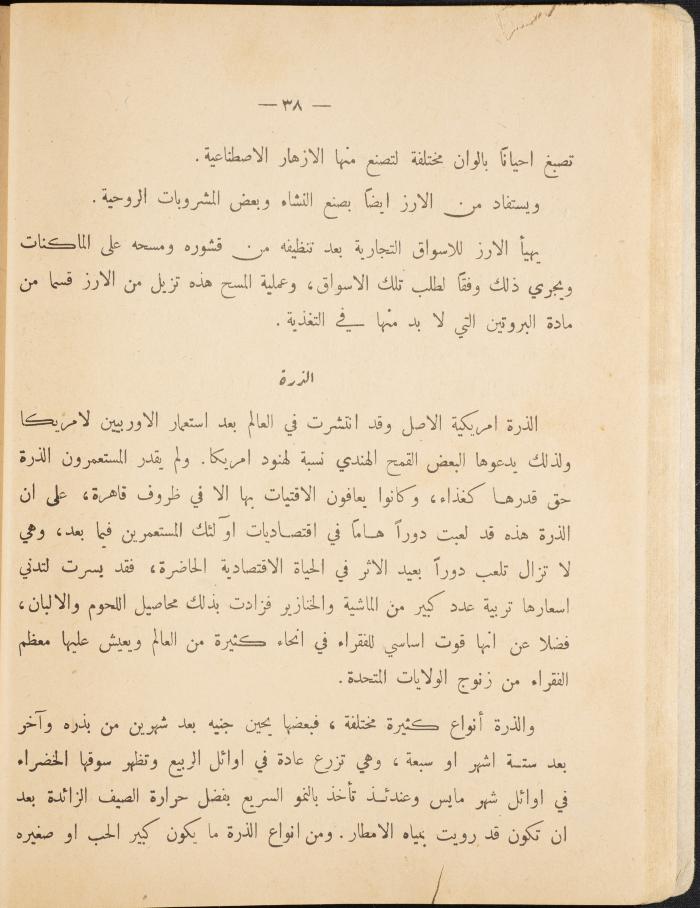 — ٣٨ —
تصبغ احيانًا بالوان مختلفة لتصنع منها الازهار الاصطناعية .
ويستفاد من الارز ايضاً بصنع النشاء وبعض المشروبات الروحية .
يهيأ الارز للاسواق التجارية بعد تنظيفه من قشوره ومسحه على الماكنات
ويجري ذلك وفقًا لطلب تلك الاسواق، وعملية المسح هذه تزيل من الارز قسما من
مادة البروتين التي لا بد منها في التغذية .
الذرة
الذرة امريكية الاصل وقد انتشرت في العالم بعد استعمار الاوربيين لامريكا
ولذلك يدعوها البعض القمح الهندي نسبة لهنود امريكا. ولم يقدر المستعمرون الذرة
حق قدرها كغذاء، وكانوا يعافون الاقتيات بها الا في ظروف قاهرة، على ان
الذرة هذه قد لعبت دوراً هاماً في اقتصاديات اولئك المستعمرين فيما بعد، وهي
لا تزال تلعب دوراً بعيد الاثر في الحياة الاقتصادية الحاضرة، فقد يسرت لتدني
اسعارها تربية عدد كبير من الماشية والخنازير فزادت بذلك محاصيل اللحوم والالبان،
فضلا عن انها قوت اساسي للفقراء في انحاء كثيرة من العالم ويعيش عليها معظم
الفقراء من زنوج الولايات المتحدة.
والذرة أنواع كثيرة مختلفة ، فبعضها يحين جنيه بعد شهرين من بذره وآخر
بعد ستة اشهر او سبعة ، وهي تزرع عادة في اوائل الربيع وتظهر سوقها الخضراء
في اوائل شهر مايس وعندئذ تأخذ بالنمو السريع بفضل حرارة الصيف الزائدة بعد
ان تكون قد رويت بمياه الامطار. ومن انواع الذرة ما يكون كبير الحب او صغيره